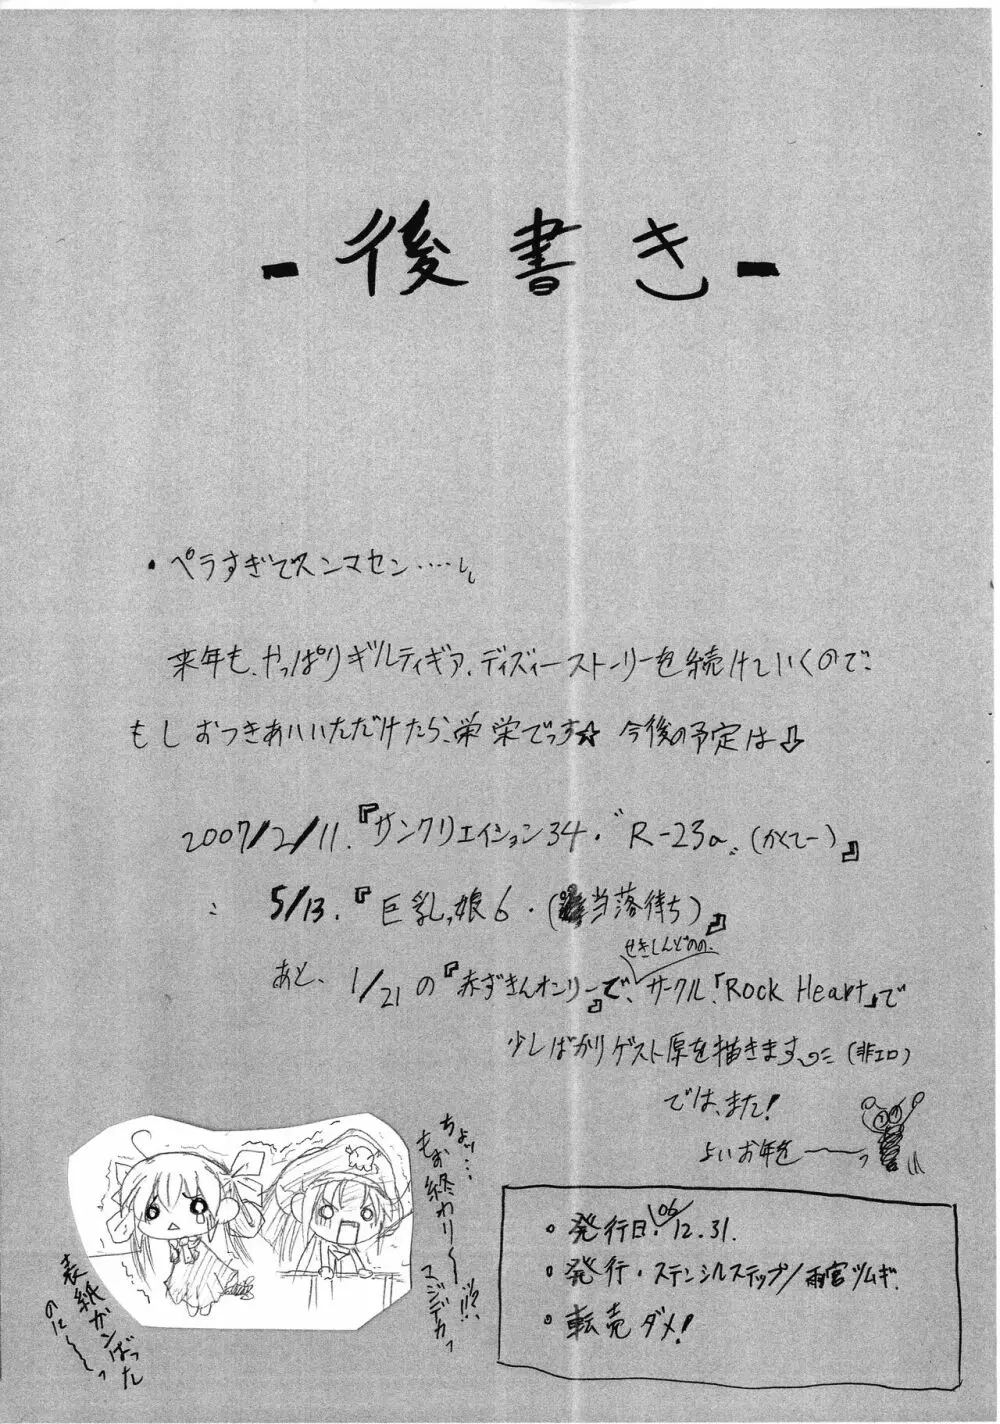 - 後書き -
・ペラすぎでスンマセン‥‥
来年も、やっぱりギルティギア、ディズィーストーリーを続けていくので、
もしおつきあいいただけたら、栄栄でっす☆ 今後の予定は⇩
2007/2/11.『サンクリエイション34・"R-23a"(かくてー)』
〃 5/13.『巨乳っ娘6・(当落待ち)』
せきしんどのの、
あと、1/21の『赤ずきんオンリー』で、サークル「Rock Heart」で
少しばかりゲスト原を描きます (非エロ)
では、また!
よいお年を〜〜っ
ちょッ…
もお終わり〜〜ッ!?!!
マジデカっ
表紙がんばった
のに〜〜〜っ
。発行日・'06 12.31.
。発行・ステンシルステップ/雨宮ツムギ
。転売ダメ!